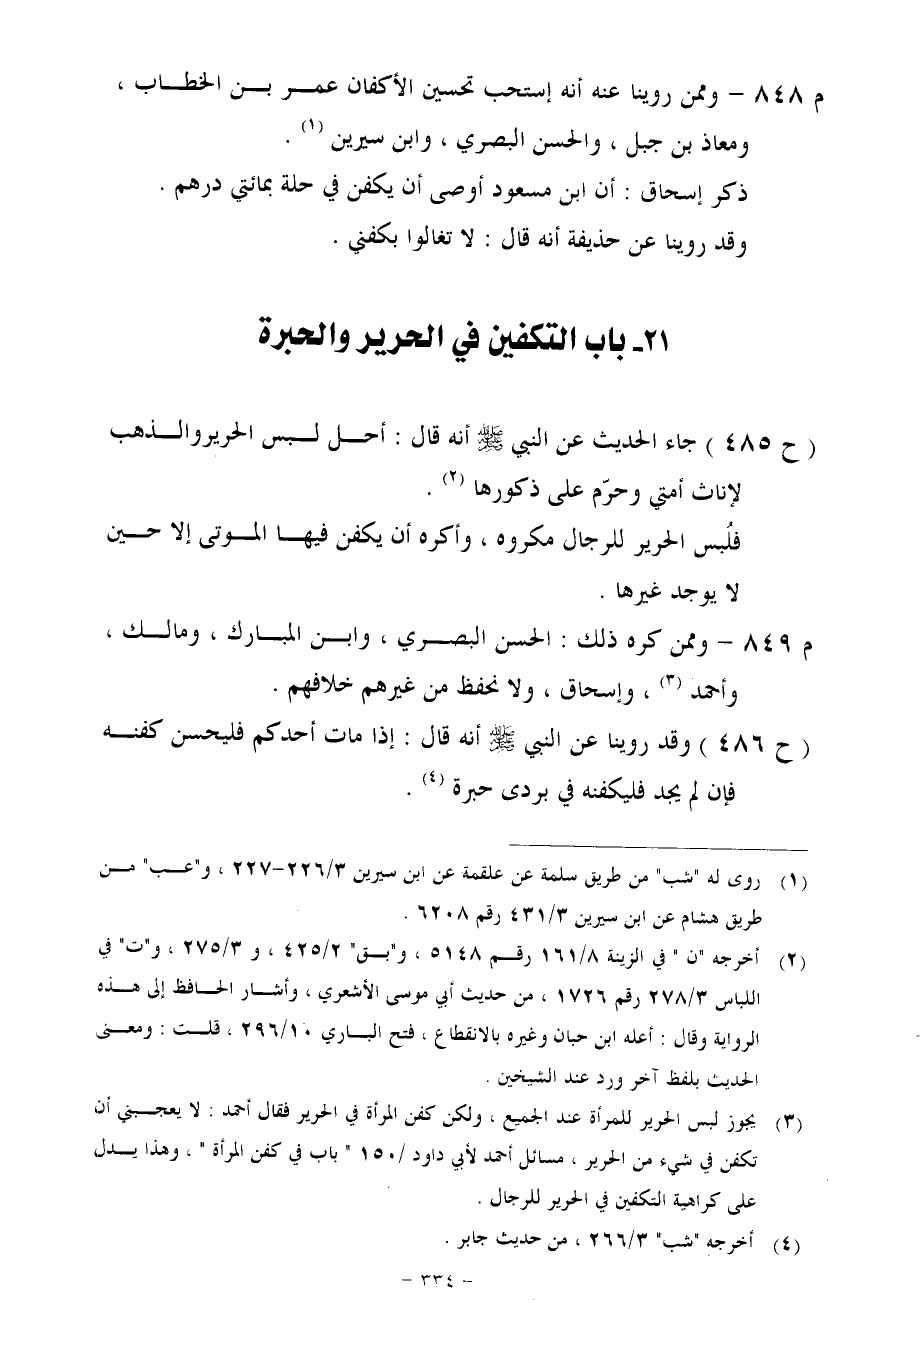 م ٨٤٨ – وممن روينا عنه أنه إستحب تحسين الأكفان عمـر بـن الخطـاب ،
ومعاذ بن جبل ، والحسن البصري ، وابن سيرين (١) .
ذكر إسحاق : أن ابن مسعود أوصى أن يكفن في حلة بمائتي درهم .
وقد روينا عن حذيفة أنه قال : لا تغالوا بكفني .
٢١ـ باب التكفين في الحرير والحبرة
( ح ٤٨٥ ) جاء الحديث عن النبي ﷺ أنه قال : أحـل لـبس الحريروالـذهب
لإناث أمتي وحرّم على ذكورها (٢) .
فلُبس الحرير للرجال مكروه ، وأكره أن يكفن فيهـا المـوتى إلا حـين
لا يوجد غيرها .
م ٨٤٩ – وممن كره ذلك : الحسن البصـري ، وابـن المبـارك ، ومالـك ،
وأحمد (٣) ، وإسحاق ، ولا نحفظ من غيرهم خلافهم .
( ح ٤٨٦ ) وقد روينا عن النبي ﷺ أنه قال : إذا مات أحدكم فليحسن كفنـه
فإن لم يجد فليكفنه في بردى حبرة (٤) .
(١) روى له "شب" من طريق سلمة عن علقمة عن ابن سيرين ٢٢٦/٣–٢٢٧ ، و"عـب" مـن
طريق هشام عن ابن سيرين ٤٣١/٣ رقم ٦٢٠٨ .
(٢) أخرجه "ن " في الزينة ١٦١/٨ رقـم ٥١٤٨ ، و"بـق" ٤٢٥/٢ ، و ٢٧٥/٣ ، و"ت" في
اللباس ٢٧٨/٣ رقم ١٧٢٦ ، من حديث أبي موسى الأشعري ، وأشـار الحـافظ إلى هـذه
الرواية وقال : أعله ابن حبان وغيره بالانقطاع ، فتح البـاري ٢٩٦/١٠ ، قلـت : ومعـنى
الحديث بلفظ آخر ورد عند الشيخين .
(٣) يجوز لبس الحرير للمرأة عند الجميع ، ولكن كفن المرأة في الحرير فقال أحمد : لا يعجـبني أن
تكفن في شيء من الحرير ، مسائل أحمد لأبي داود /١٥٠ " باب في كفن المرأة " ، وهذا يـدل
على كراهية التكفين في الحرير للرجال .
(٤) أخرجه "شب" ٢٦٦/٣ ، من حديث جابر .
– ٣٣٤ –